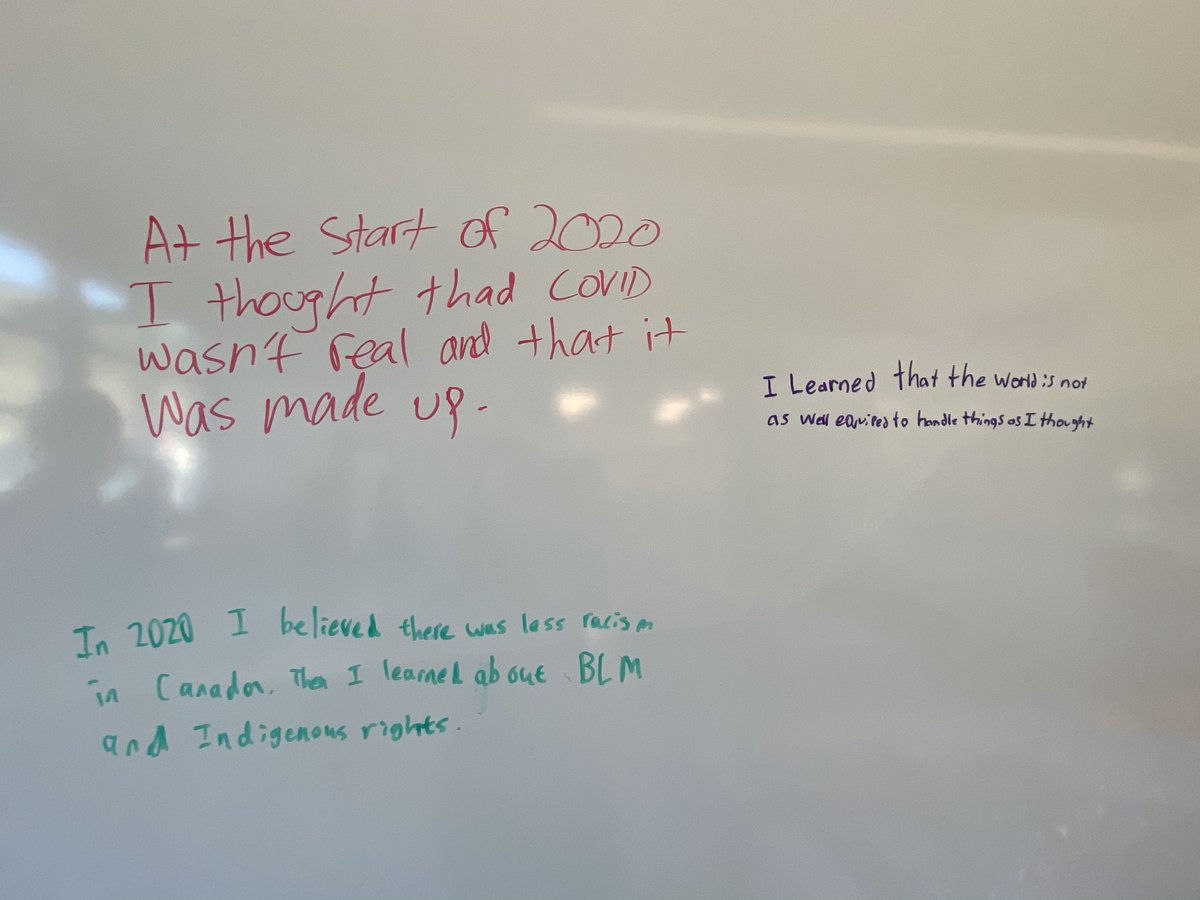 At the Start of 2020
I thought thad COVID
wasn't real and that it
Was made up.
I Learned that the World is not
as well equiped to handle things as I thought
In 2020 I believed there was less racism
in Canada. Then I learned about BLM
and Indigenous rights.